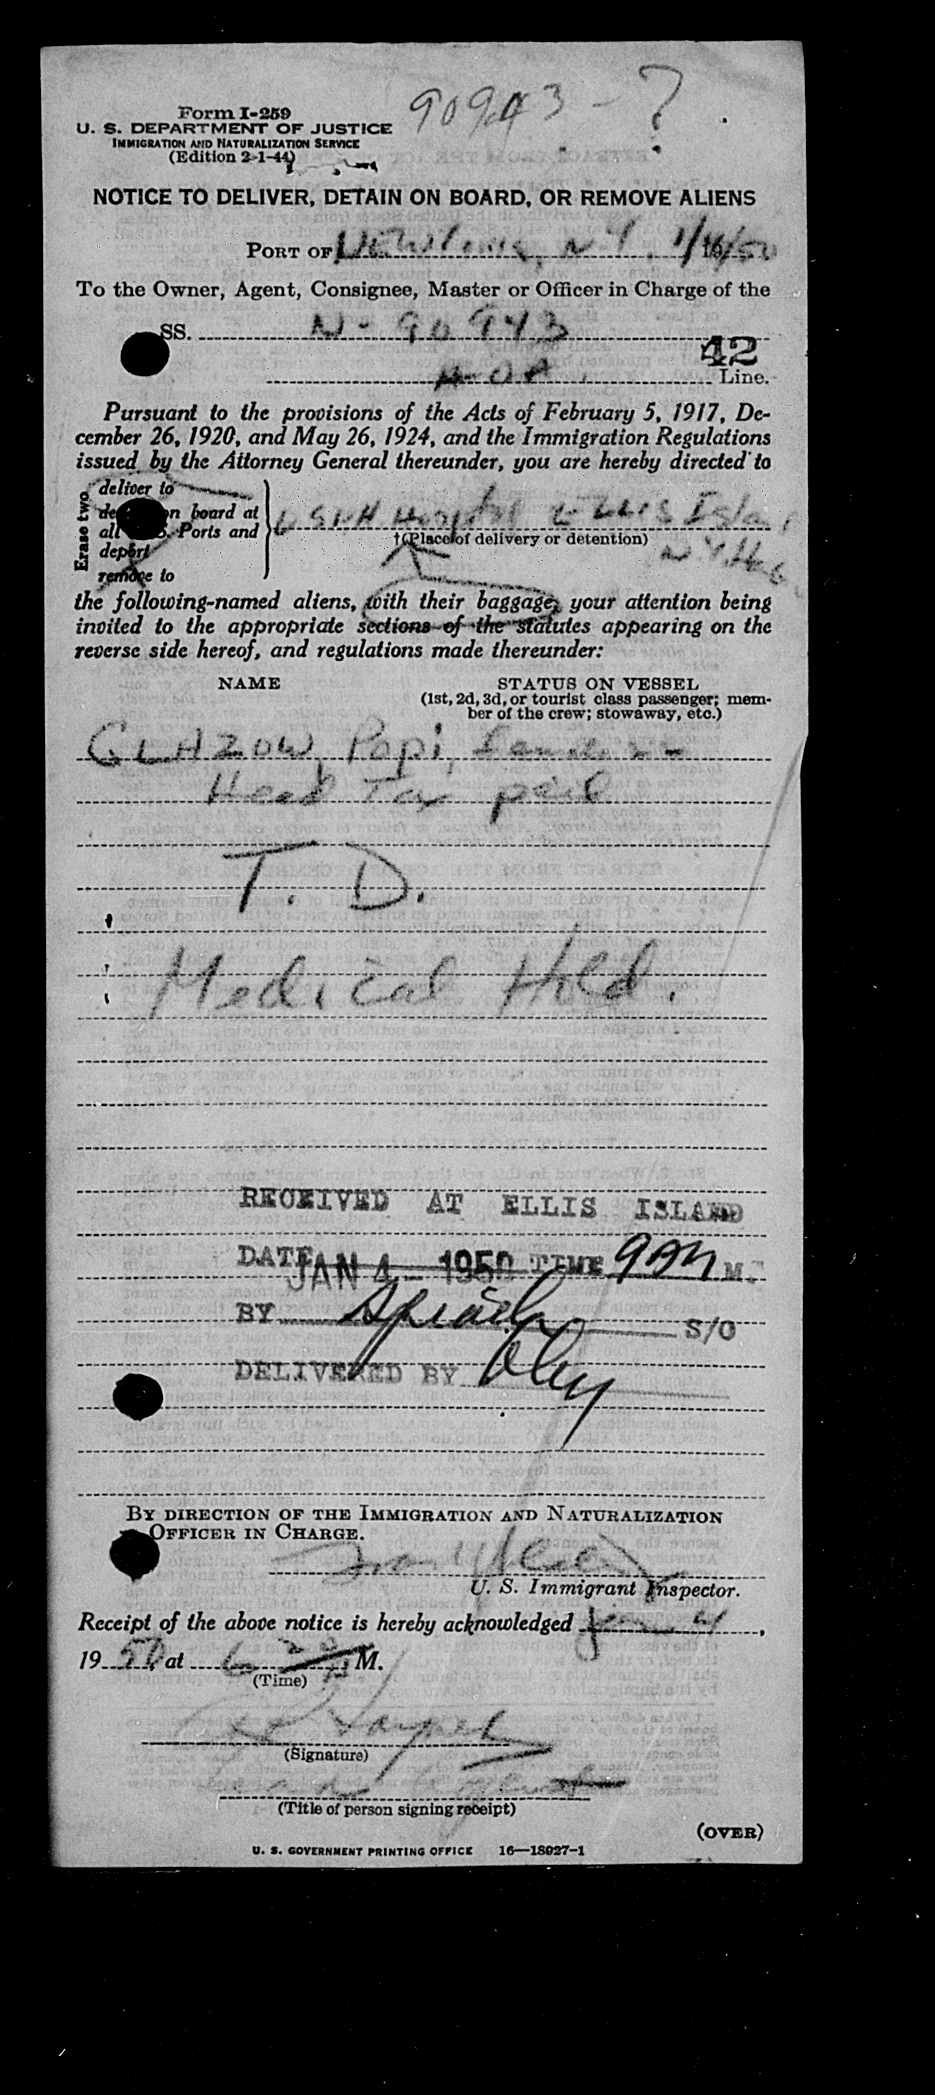 90943 - ?
Form I-259
U. S. DEPARTMENT OF JUSTICE
IMMIGRATION AND NATURALIZATION SERVICE
(Edition 2-1-44)
NOTICE TO DELIVER, DETAIN ON BOARD, OR REMOVE ALIENS
PORT OF New York, N Y.
To the Owner, Agent, Consignee, Master or Officer in Charge of the
SS. N - 90943
42
A-O A Line.
Pursuant to the provisions of the Acts of February 5, 1917, De-
cember 26, 1920, and May 26, 1924, and the Immigration Regulations
issued by the Attorney General thereunder, you are hereby directed to
Erase two
deliver to
on board at
all Ports and
deport
remove to
Hospital ELLIS Island
†(Place of delivery or detention)
the following-named aliens, with their baggage, your attention being
invited to the appropriate sections of the statutes appearing on the
reverse side hereof, and regulations made thereunder:
NAME
STATUS ON VESSEL
(1st, 2d, 3d, or tourist class passenger; mem-
ber of the crew; stowaway, etc.)
GLAZOW, Popi,
Head Tax paid
T. D.
Medical Hold.
RECEIVED AT ELLIS ISLAND
DATE JAN 4 - 1950 TIME 9 M.
BY S/O
DELIVERED BY
BY DIRECTION OF THE IMMIGRATION AND NATURALIZATION
OFFICER IN CHARGE.
U. S. Immigrant Inspector.
Receipt of the above notice is hereby acknowledged Jan 4,
19 50, at 6 M.
(Time)
(Signature)
(Title of person signing receipt)
(OVER)
U. S. GOVERNMENT PRINTING OFFICE 16—18927-1